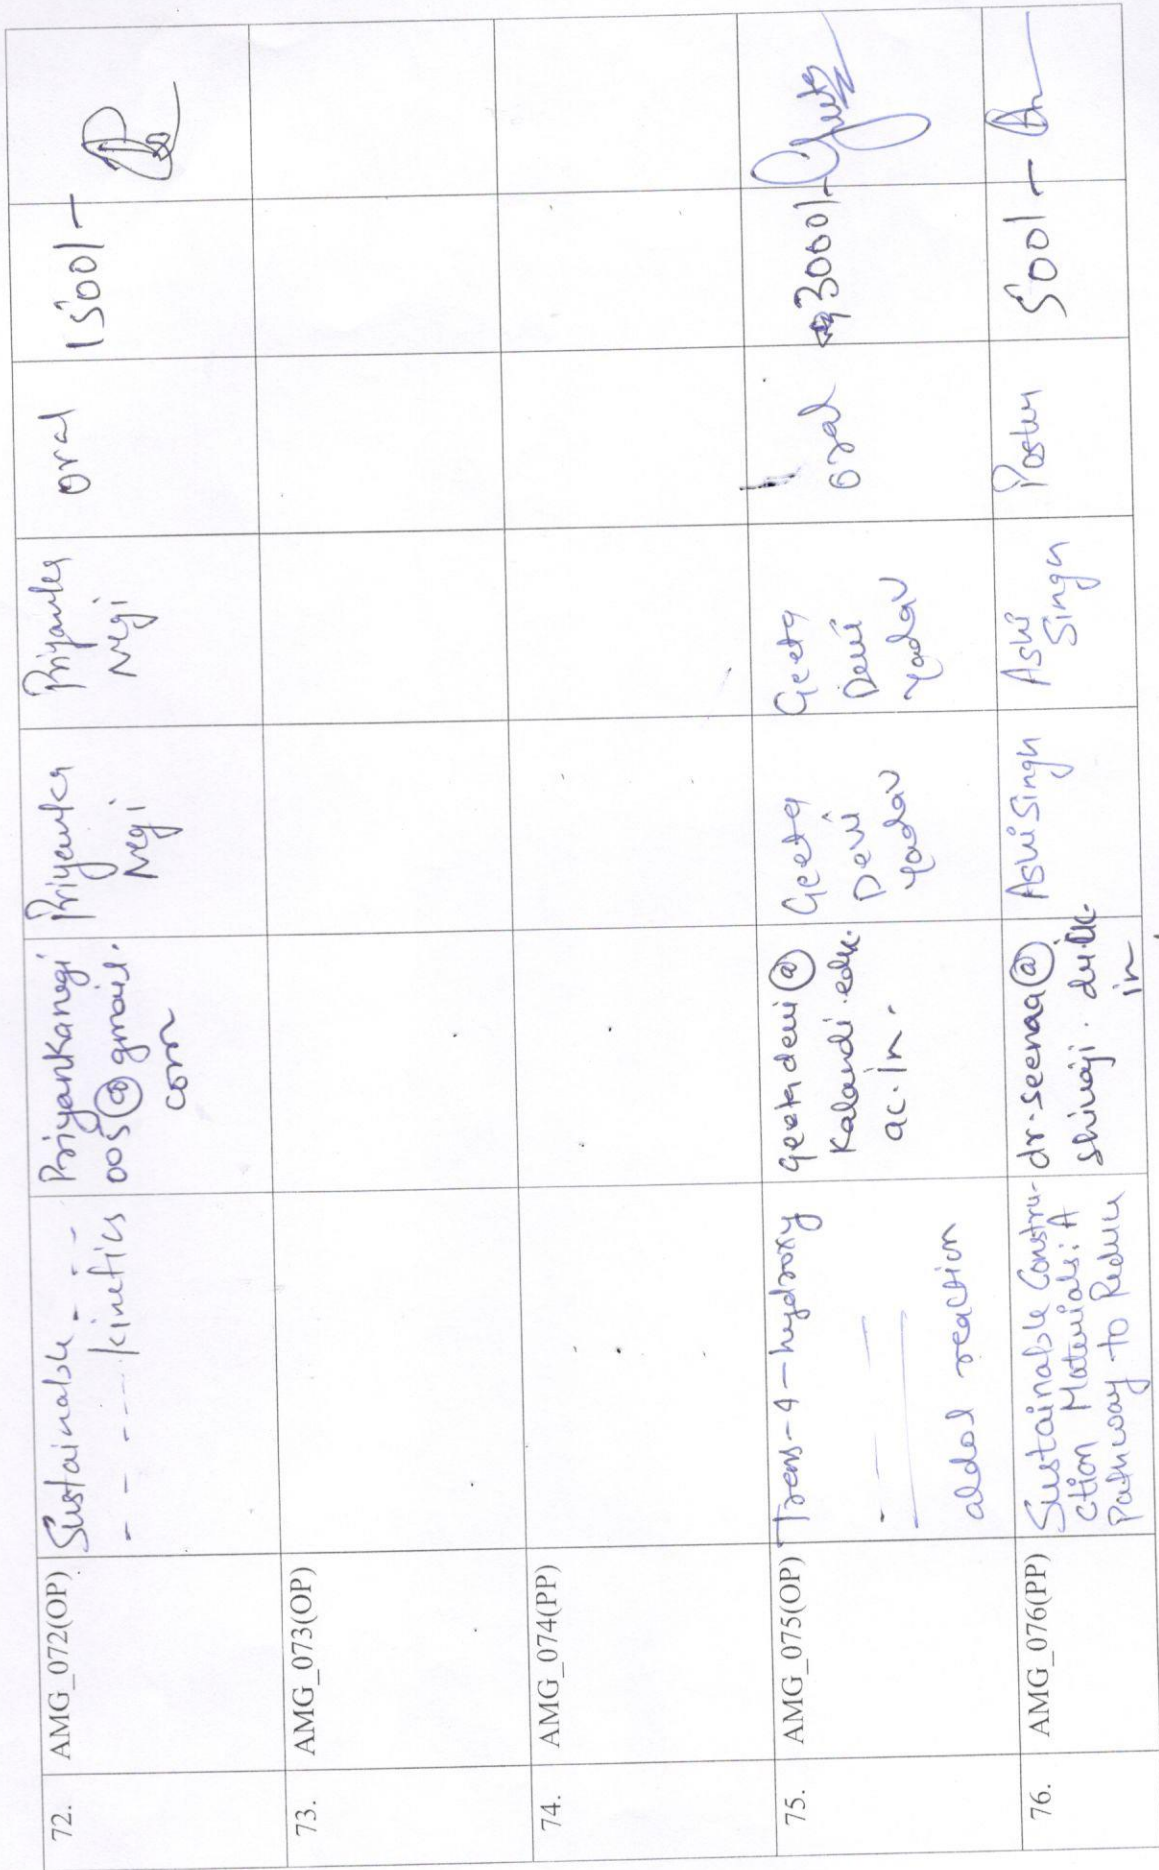 72.
AMG_072(OP)
Sustainable - - -
- - - - - kinetics
Priyankanegi
005@gmail.
com
Priyanka
Negi
Priyanka
Negi
oral
1500/-
73.
AMG_073(OP)
74.
AMG_074(PP)
75.
AMG_075(OP)
Trans-4-hydroxy
aldol reaction
geetadevi@
Kalandi.edu.
ac.in.
Geeta
Devi
Yadav
Geeta
Devi
Yadav
Oral
3000/-
76.
AMG_076(PP)
Sustainable Constru-
ction Materials: A
Pathway to Reduce
dr.seenaa@
shivaji.
in
Ashi Singh
Ashi
Singh
Poster
500/-